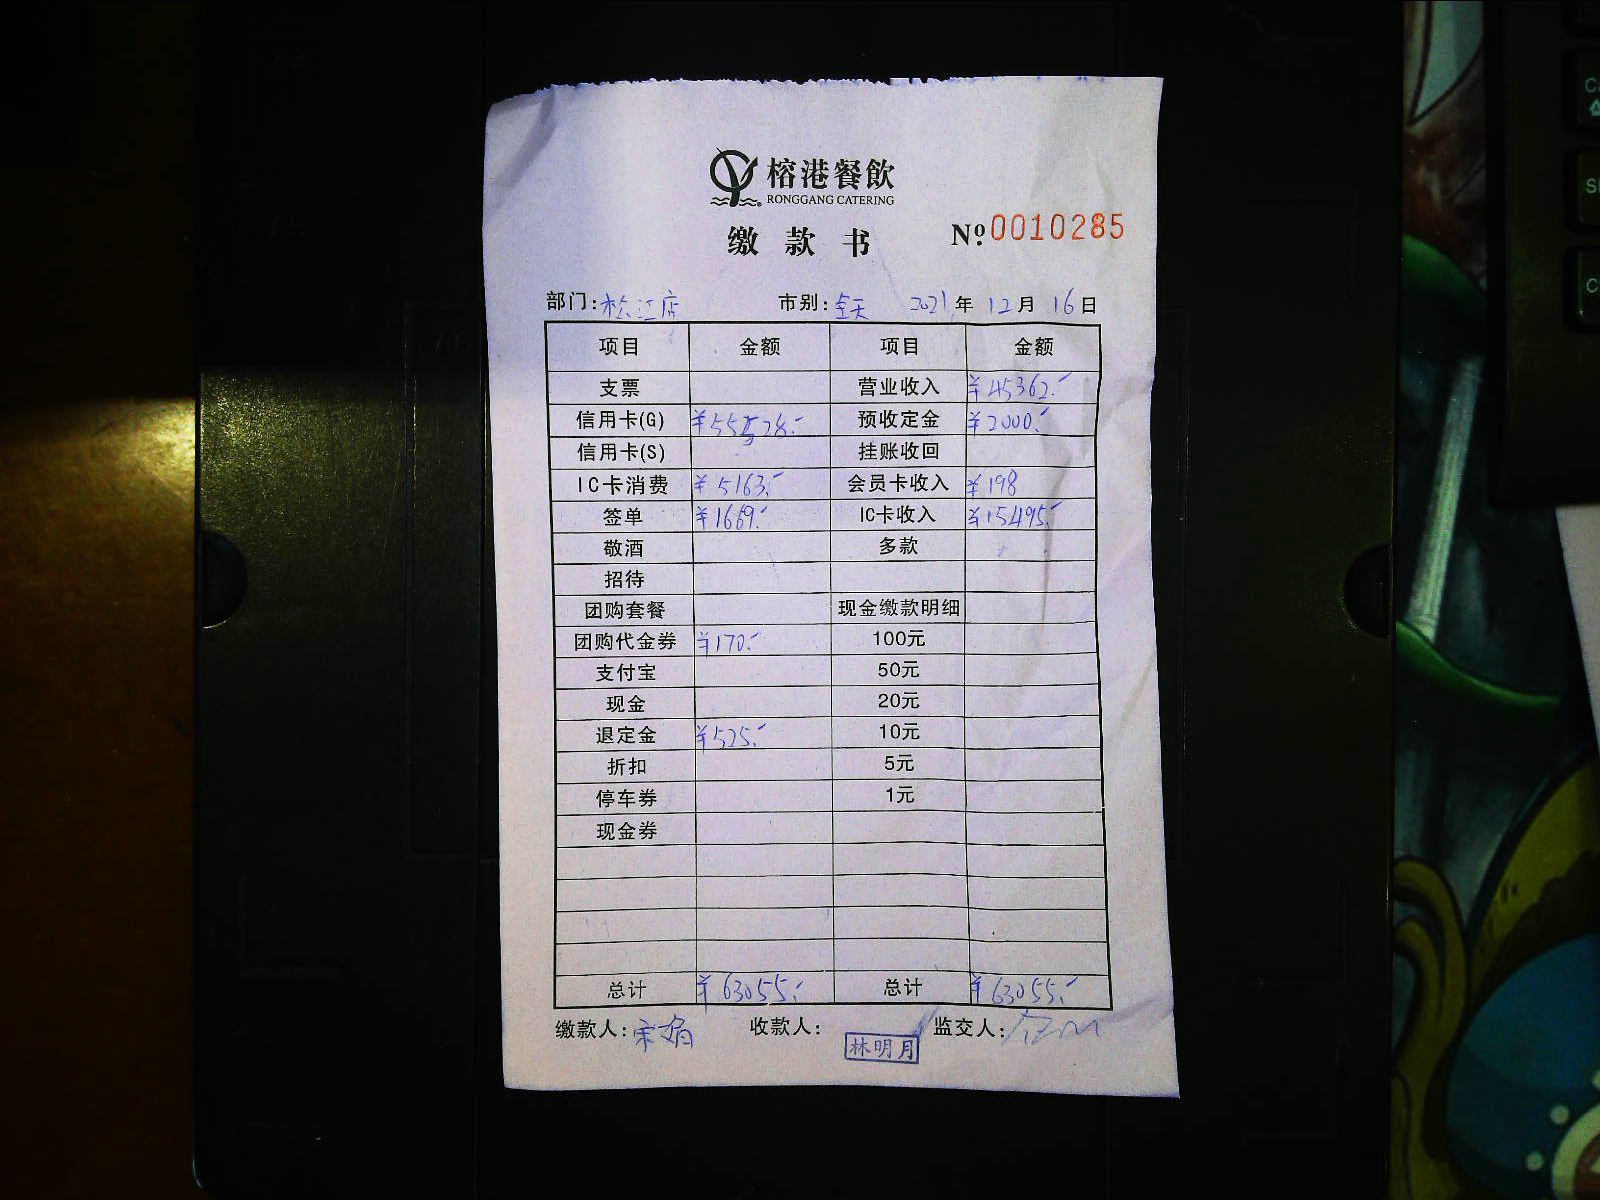 榕港餐飲
RONGGANG CATERING
缴款书 № 0010285
部门: 松江店 市别: 全天 2021年12月16日
项目 金额 项目 金额
支票 营业收入 ¥45362.-
信用卡(G) ¥55528.- 预收定金 ¥2000.-
信用卡(S) 挂账收回
IC卡消费 ¥5163.- 会员卡收入 ¥198
签单 ¥1669.- IC卡收入 ¥15495.-
敬酒 多款
招待
团购套餐 现金缴款明细
团购代金券 ¥170.- 100元
支付宝 50元
现金 20元
退定金 ¥525.- 10元
折扣 5元
停车券 1元
现金券
总计 ¥63055.- 总计 ¥63055.-
缴款人: 收款人: 林明月 监交人: